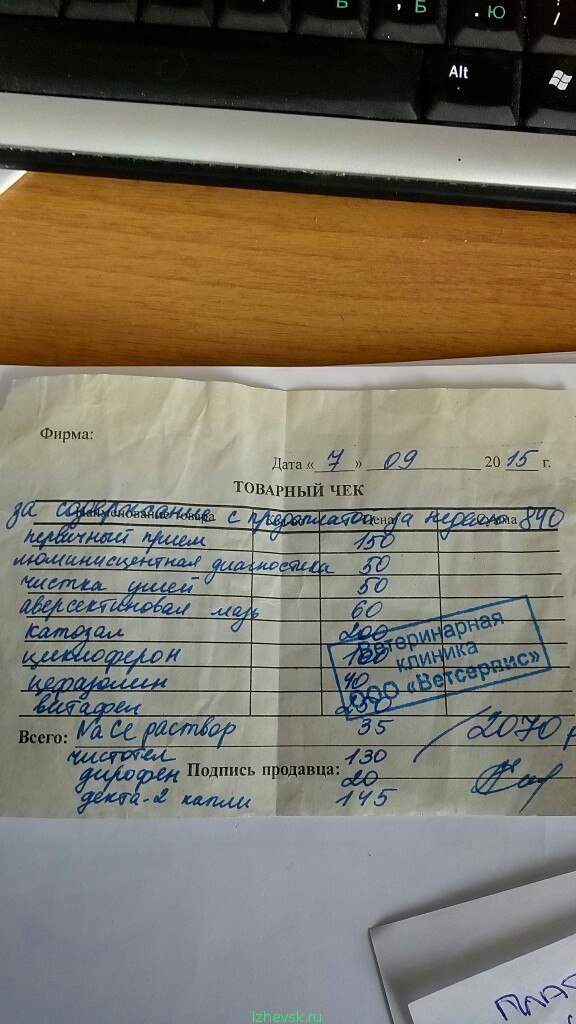 Б , Б . Ю /
Alt
Фирма:
Дата « 7 » 09 20 15 г.
ТОВАРНЫЙ ЧЕК
Наименование товара Цена Сумма
за содержание с предоплатой за неделю 840
первичный прием 150
люминисцентная диагностика 50
чистка ушей 50
аверсектиновая мазь 60
катозал 200
циклоферон
цефазолин 40
витафел
Ветеринарная
клиника
ООО «Ветсервис»
Всего: NaCe раствор 35 2070 р
чистотел 130
дирофен 20
Подпись продавца:
декта-2 капли 145
izhevsk.ru